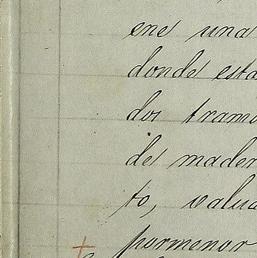 ene una
donde esta
dos tramo
de mader
to, valua
pormenor